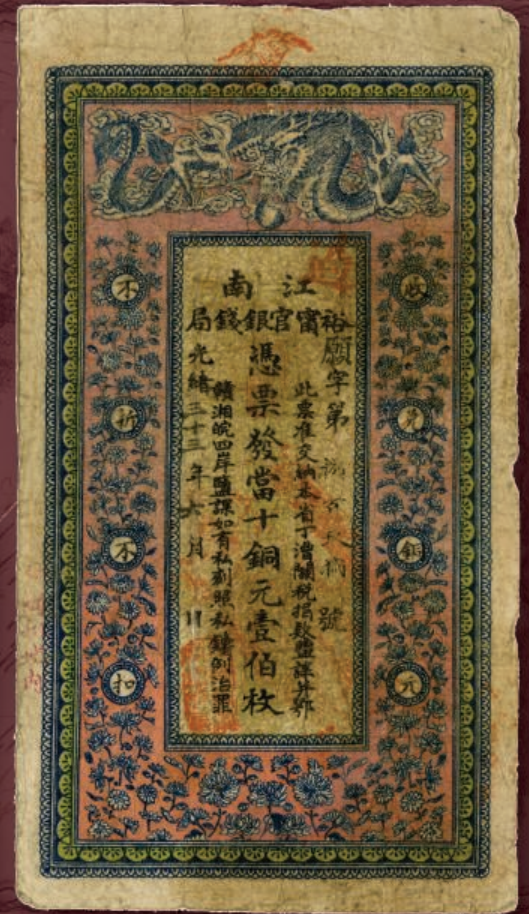 江南
裕甯官銀錢局
願字第 捌百 號
此票准交納本省丁漕關稅捐款鹽課并鄂
憑票發當十銅元壹佰枚
贛湘皖四岸鹽課如有私刻照私鑄例治罪
光緒三十三年六月 日
收兌銅元
不折不扣